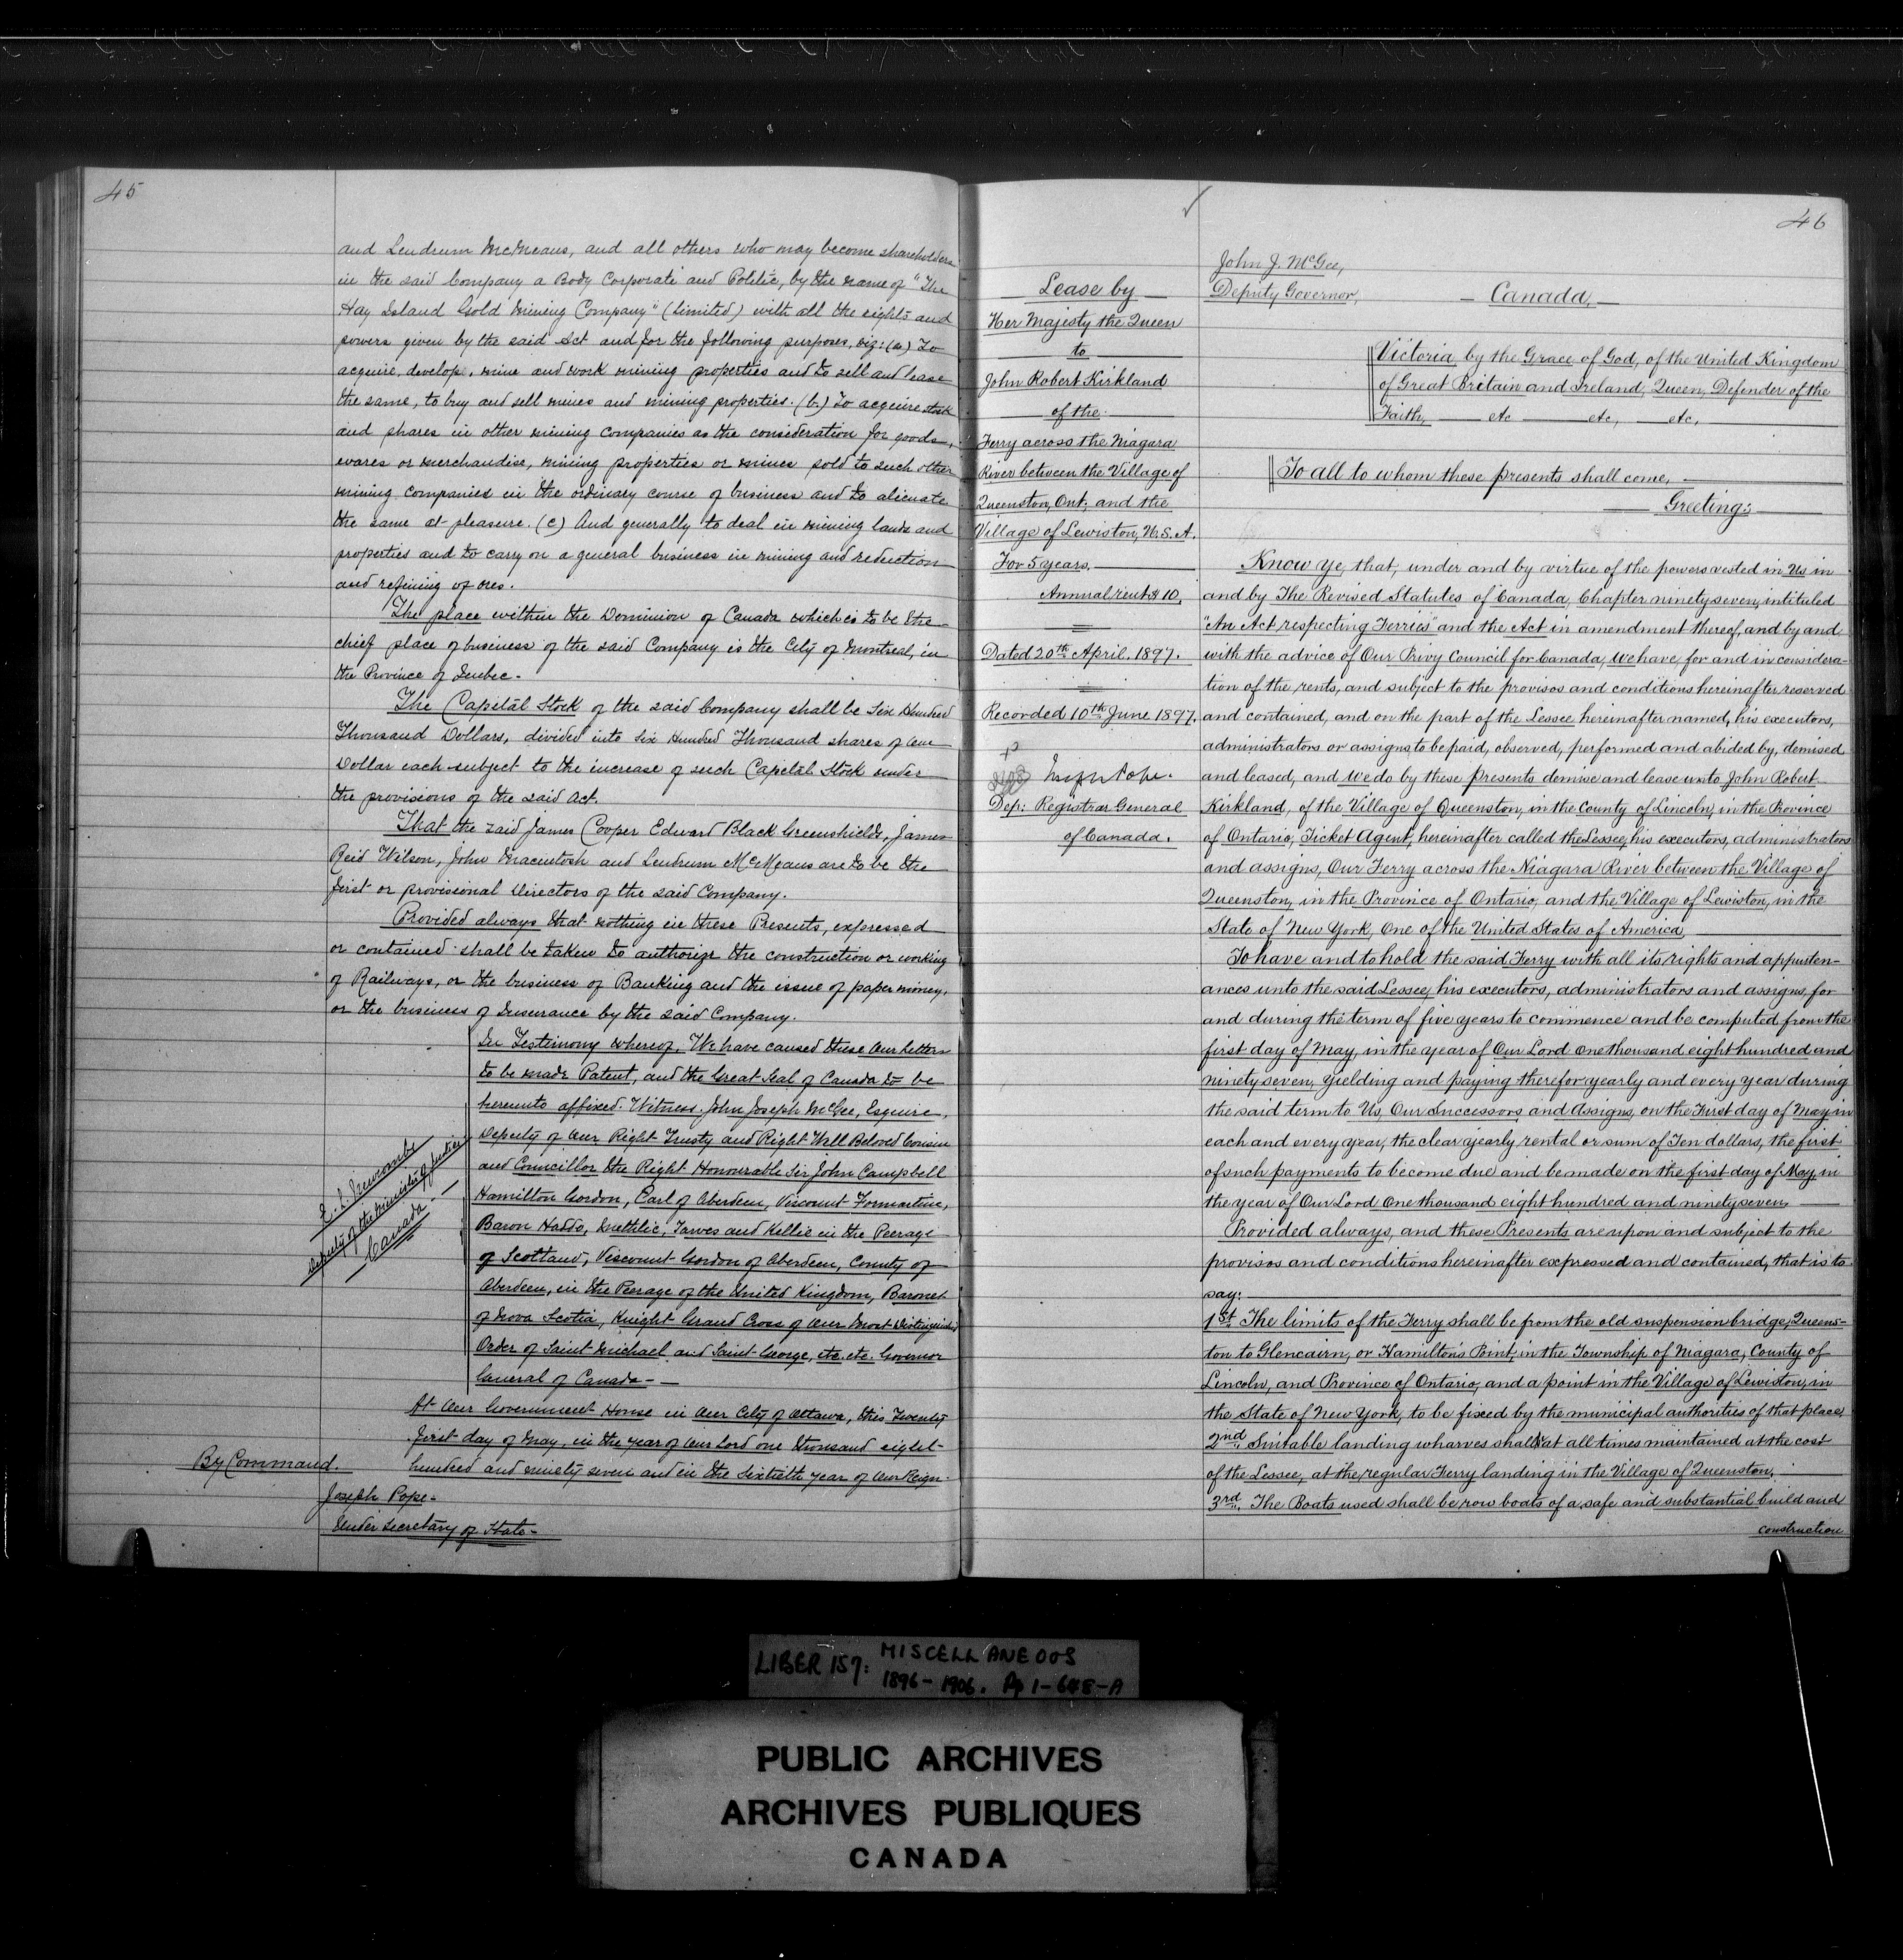 45
and Lendrum McMeans, and all others who may become shareholders
in the said Company a Body Corporate and Politic, by the name of "The
Hay Island Gold Mining Company" (Limited) with all the rights and
powers given by the said Act and for the following purposes, viz: (a) To
acquire, develope, mine and work mining properties and to sell and lease
the same, to buy and sell mines and mining properties. (b.) To acquire stock
and shares in other mining companies as the consideration for goods,
wares or merchandise, mining properties or mines sold to such other
mining companies in the ordinary course of business and to alienate
the same at pleasure. (c) And generally to deal in mining lands and
properties and to carry on a general business in mining and reduction
and refining of ores.
The place within the Dominion of Canada which is to be the
chief place of business of the said Company is the City of Montreal, in
the Province of Quebec.
The Capital Stock of the said Company shall be Six Hundred
Thousand Dollars, divided into Six Hundred Thousand shares of One
Dollar each subject to the increase of such Capital Stock under
the provisions of the said Act.
That the said James Cooper Edward Black Greenshields, James
Reid Wilson, John Macintosh and Lendrum McMeans are to be the
first or provisional Directors of the said Company.
Provided always that nothing in these Presents, expressed
or contained shall be taken to authorize the construction or working
of Railways, or the business of Banking and the issue of paper money,
or the business of Insurance by the said Company.
In Testimony whereof, We have caused these Our Letters
to be made Patent, and the Great Seal of Canada to be
hereunto affixed. Witness. John Joseph McGee, Esquire,
Deputy of Our Right Trusty and Right Well Beloved Cousin
and Councillor the Right Honourable Sir John Campbell
Hamilton Gordon, Earl of Aberdeen, Viscount Formartine,
Baron Haddo, Methlic, Tarves and Kellie in the Peerage
of Scotland, Viscount Gordon of Aberdeen, County of
Aberdeen, in the Peerage of the United Kingdom, Baronet
of Nova Scotia, Knight Grand Cross of Our Most Distinguished
Order of Saint Michael and Saint George, etc. etc. Governor
General of Canada - —
E. L. Newcombe
Deputy of the Minister of Justice
Canada -
At Our Government House in Our City of Ottawa, this Twenty
first day of May, in the year of Our Lord one thousand eight
hundred and ninety seven and in the Sixtieth year of Our Reign.
By Command.
Joseph Pope.
Under Secretary of State -
46
Lease by
Her Majesty the Queen
to
John Robert Kirkland
of the
Ferry across the Niagara
River between the Village of
Queenston, Ont. and the
Village of Lewiston, U.S.A.
For 5 years,
Annual rent $10.
Dated 20th April. 1897.
Recorded 10th June 1897.
Joseph Pope.
Dep: Registrar General
of Canada.
John J. McGee,
Deputy Governor,
Canada,
Victoria, by the Grace of God, of the United Kingdom
of Great Britain and Ireland, Queen, Defender of the
Faith, — etc — etc, — etc,
To all to whom these presents shall come, —
Greeting:
Know ye, that, under and by virtue of the powers vested in Us in
and by The Revised Statutes of Canada, Chapter ninety seven, intituled
"An Act respecting Ferries" and the Act in amendment thereof, and by and
with the advice of Our Privy Council for Canada, We have, for and in considera-
tion of the rents, and subject to the provisos and conditions hereinafter reserved
and contained, and on the part of the Lessee hereinafter named, his executors,
administrators or assigns to be paid, observed, performed and abided by, demised
and leased, and We do by these Presents demise and lease unto John Robert
Kirkland, of the Village of Queenston, in the County of Lincoln, in the Province
of Ontario, Ticket Agent, hereinafter called the Lessee, his executors, administrators
and assigns, Our Ferry across the Niagara River between the Village of
Queenston, in the Province of Ontario, and the Village of Lewiston, in the
State of New York, One of the United States of America,
To have and to hold the said Ferry with all its rights and appurten-
ances unto the said Lessee, his executors, administrators and assigns, for
and during the term of five years to commence and be computed from the
first day of May, in the year of Our Lord one thousand eight hundred and
ninety seven, Yielding and paying therefor yearly and every year during
the said term to Us, Our Successors and Assigns, on the First day of May in
each and every year, the clear yearly rental or sum of Ten dollars, the first
of such payments to become due and be made on the first day of May, in
the year of Our Lord One thousand eight hundred and ninety seven
Provided always, and these Presents are upon and subject to the
provisos and conditions hereinafter expressed and contained, that is to
say:
1st. The limits of the Ferry shall be from the old suspension bridge, Queens-
ton to Glencairn, or Hamilton's Point, in the Township of Niagara, County of
Lincoln, and Province of Ontario, and a point in the Village of Lewiston, in
the State of New York, to be fixed by the municipal authorities of that place,
2nd. Suitable landing wharves shall at all times maintained at the cost
of the Lessee, at the regular Ferry landing in the Village of Queenston,
3rd. The Boats used shall be row boats of a safe and substantial build and
construction
LIBER 157: MISCELLANEOUS
1896-1906. Pp 1-648-A
PUBLIC ARCHIVES
ARCHIVES PUBLIQUES
CANADA